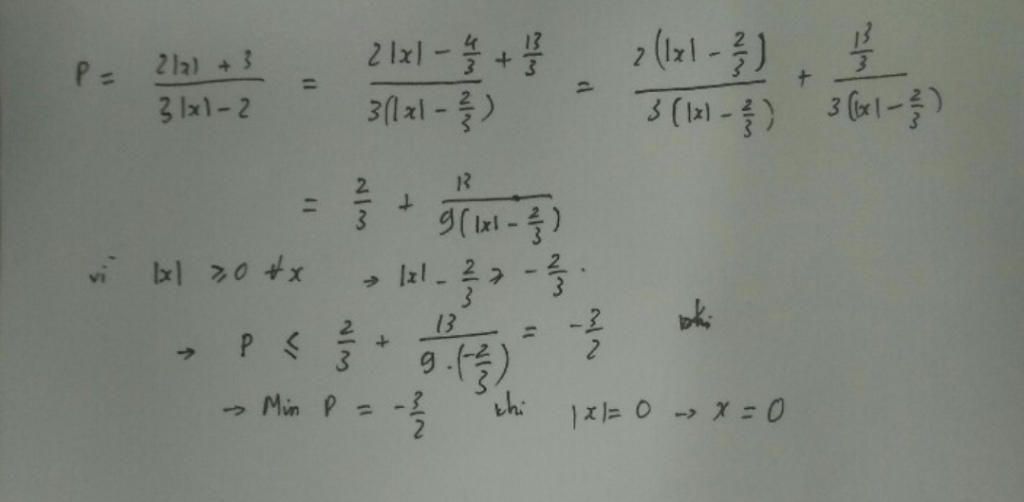 P = \frac{2|x| + 3}{3|x| - 2} = \frac{2|x| - \frac{4}{3} + \frac{13}{3}}{3(|x| - \frac{2}{3})} = \frac{2(|x| - \frac{2}{3})}{3(|x| - \frac{2}{3})} + \frac{\frac{13}{3}}{3(|x| - \frac{2}{3})}
= \frac{2}{3} + \frac{13}{9(|x| - \frac{2}{3})}
vì |x| ≥ 0 ∀x → |x| - \frac{2}{3} ≥ -\frac{2}{3}.
→ P ≤ \frac{2}{3} + \frac{13}{9.(-\frac{2}{3})} = -\frac{3}{2} khi
→ Min P = -\frac{3}{2} khi |x| = 0 → x = 0